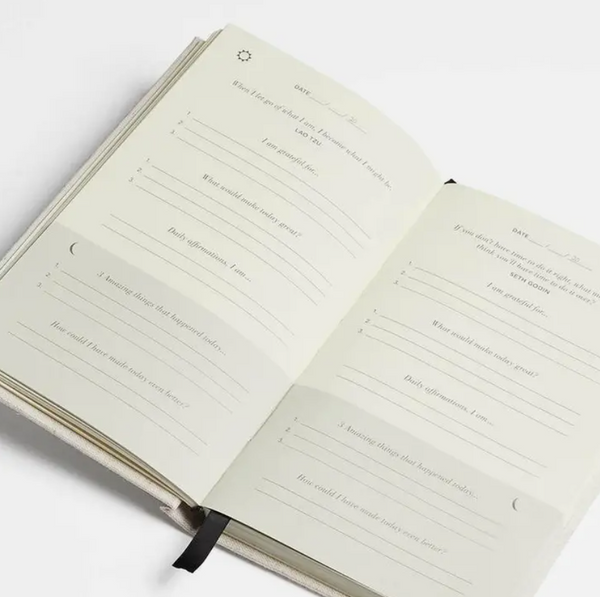 DATE __/__/20__
When I let go of what I am, I become what I might be.
LAO TZU
I am grateful for...
1.
2.
3.
What would make today great?
1.
2.
3.
Daily affirmations. I am...
3 Amazing things that happened today...
1.
2.
3.
How could I have made today even better?
DATE __/__/20__
If you don't have time to do it right, what
think you'll have time to do it over?
SETH GODIN
I am grateful for...
1.
2.
3.
What would make today great?
1.
2.
3.
Daily affirmations. I am...
3 Amazing things that happened today...
1.
2.
3.
How could I have made today even better?